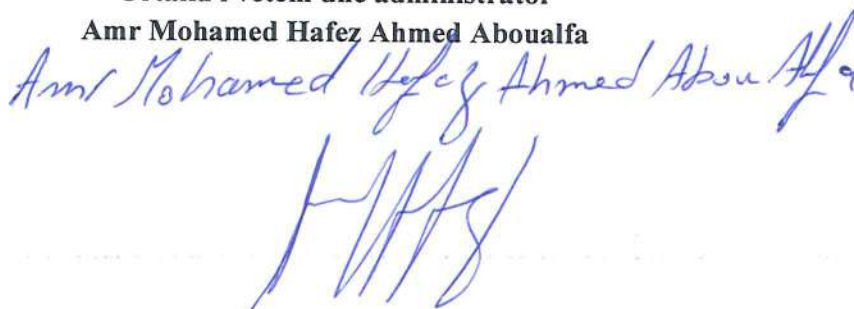 administrator
Amr Mohamed Hafez Ahmed Aboualfa
Amr Mohamed Hafez Ahmed Abou Alfa